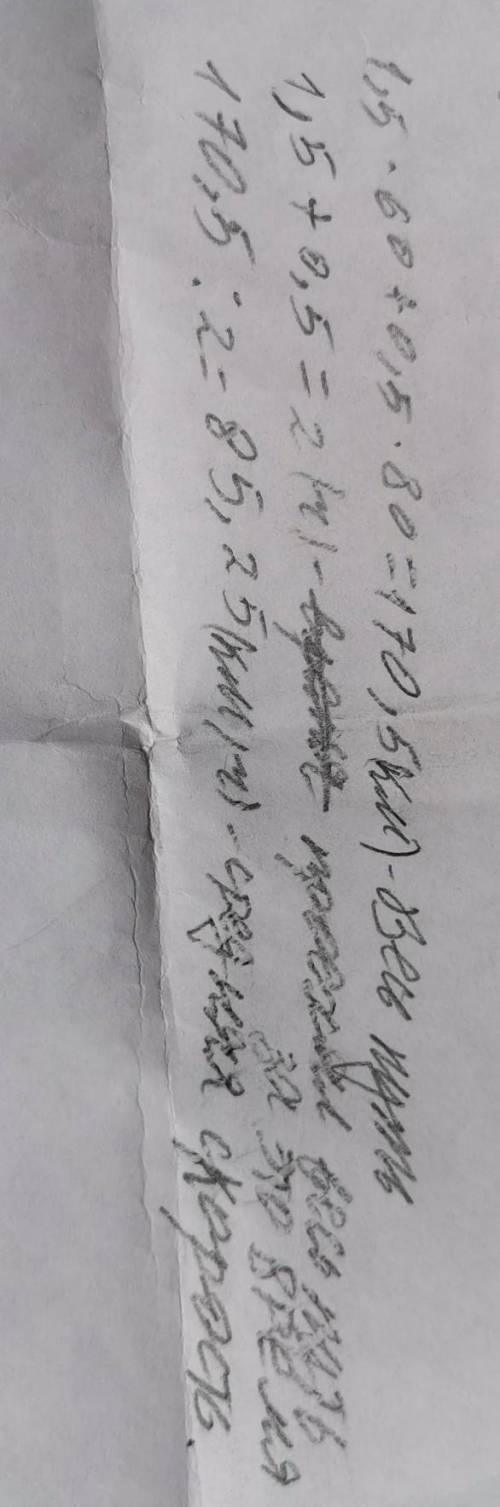 1,5 · 60 + 0,5 · 80 = 170,5(км) - весь путь
1,5 + 0,5 = 2 (ч) - проехали весь путь
за это время
170,5 : 2 = 85,25(км/ч) - средняя скорость.